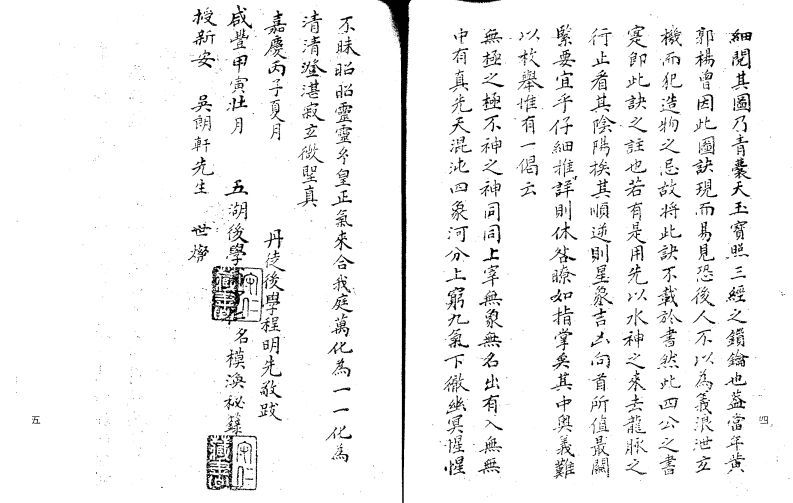 細閱其圖乃青囊天玉寶照三經之鎖鑰也蓋當年黃
郭楊曾因此圖訣現而易見恐後人不以為義浪泄立
機而犯造物之忌故將此訣不載於書然此四公之書
寔即此訣之註也若有是用先以水神之來去龍脉之
行止看其陰陽挨其順逆則星象吉凶向首所值最關
緊要宜乎仔細推詳則休咎瞭如指掌矣其中奧義難
以枚舉惟有一偈云
無極之極不神之神同同上宰無象無名出有入無無
中有真先天混沌四象河分上窮九氣下徹幽冥惺惺
四
不昧昭昭靈靈皇正氣來合我庭萬化為一一化為
清清澄湛寂立微聖真
嘉慶丙子夏月 丹徒後學程明先敬跋
咸豐甲寅壯月 五湖後學名模渙秘籙
授新安 吳朗軒先生 世燦
五